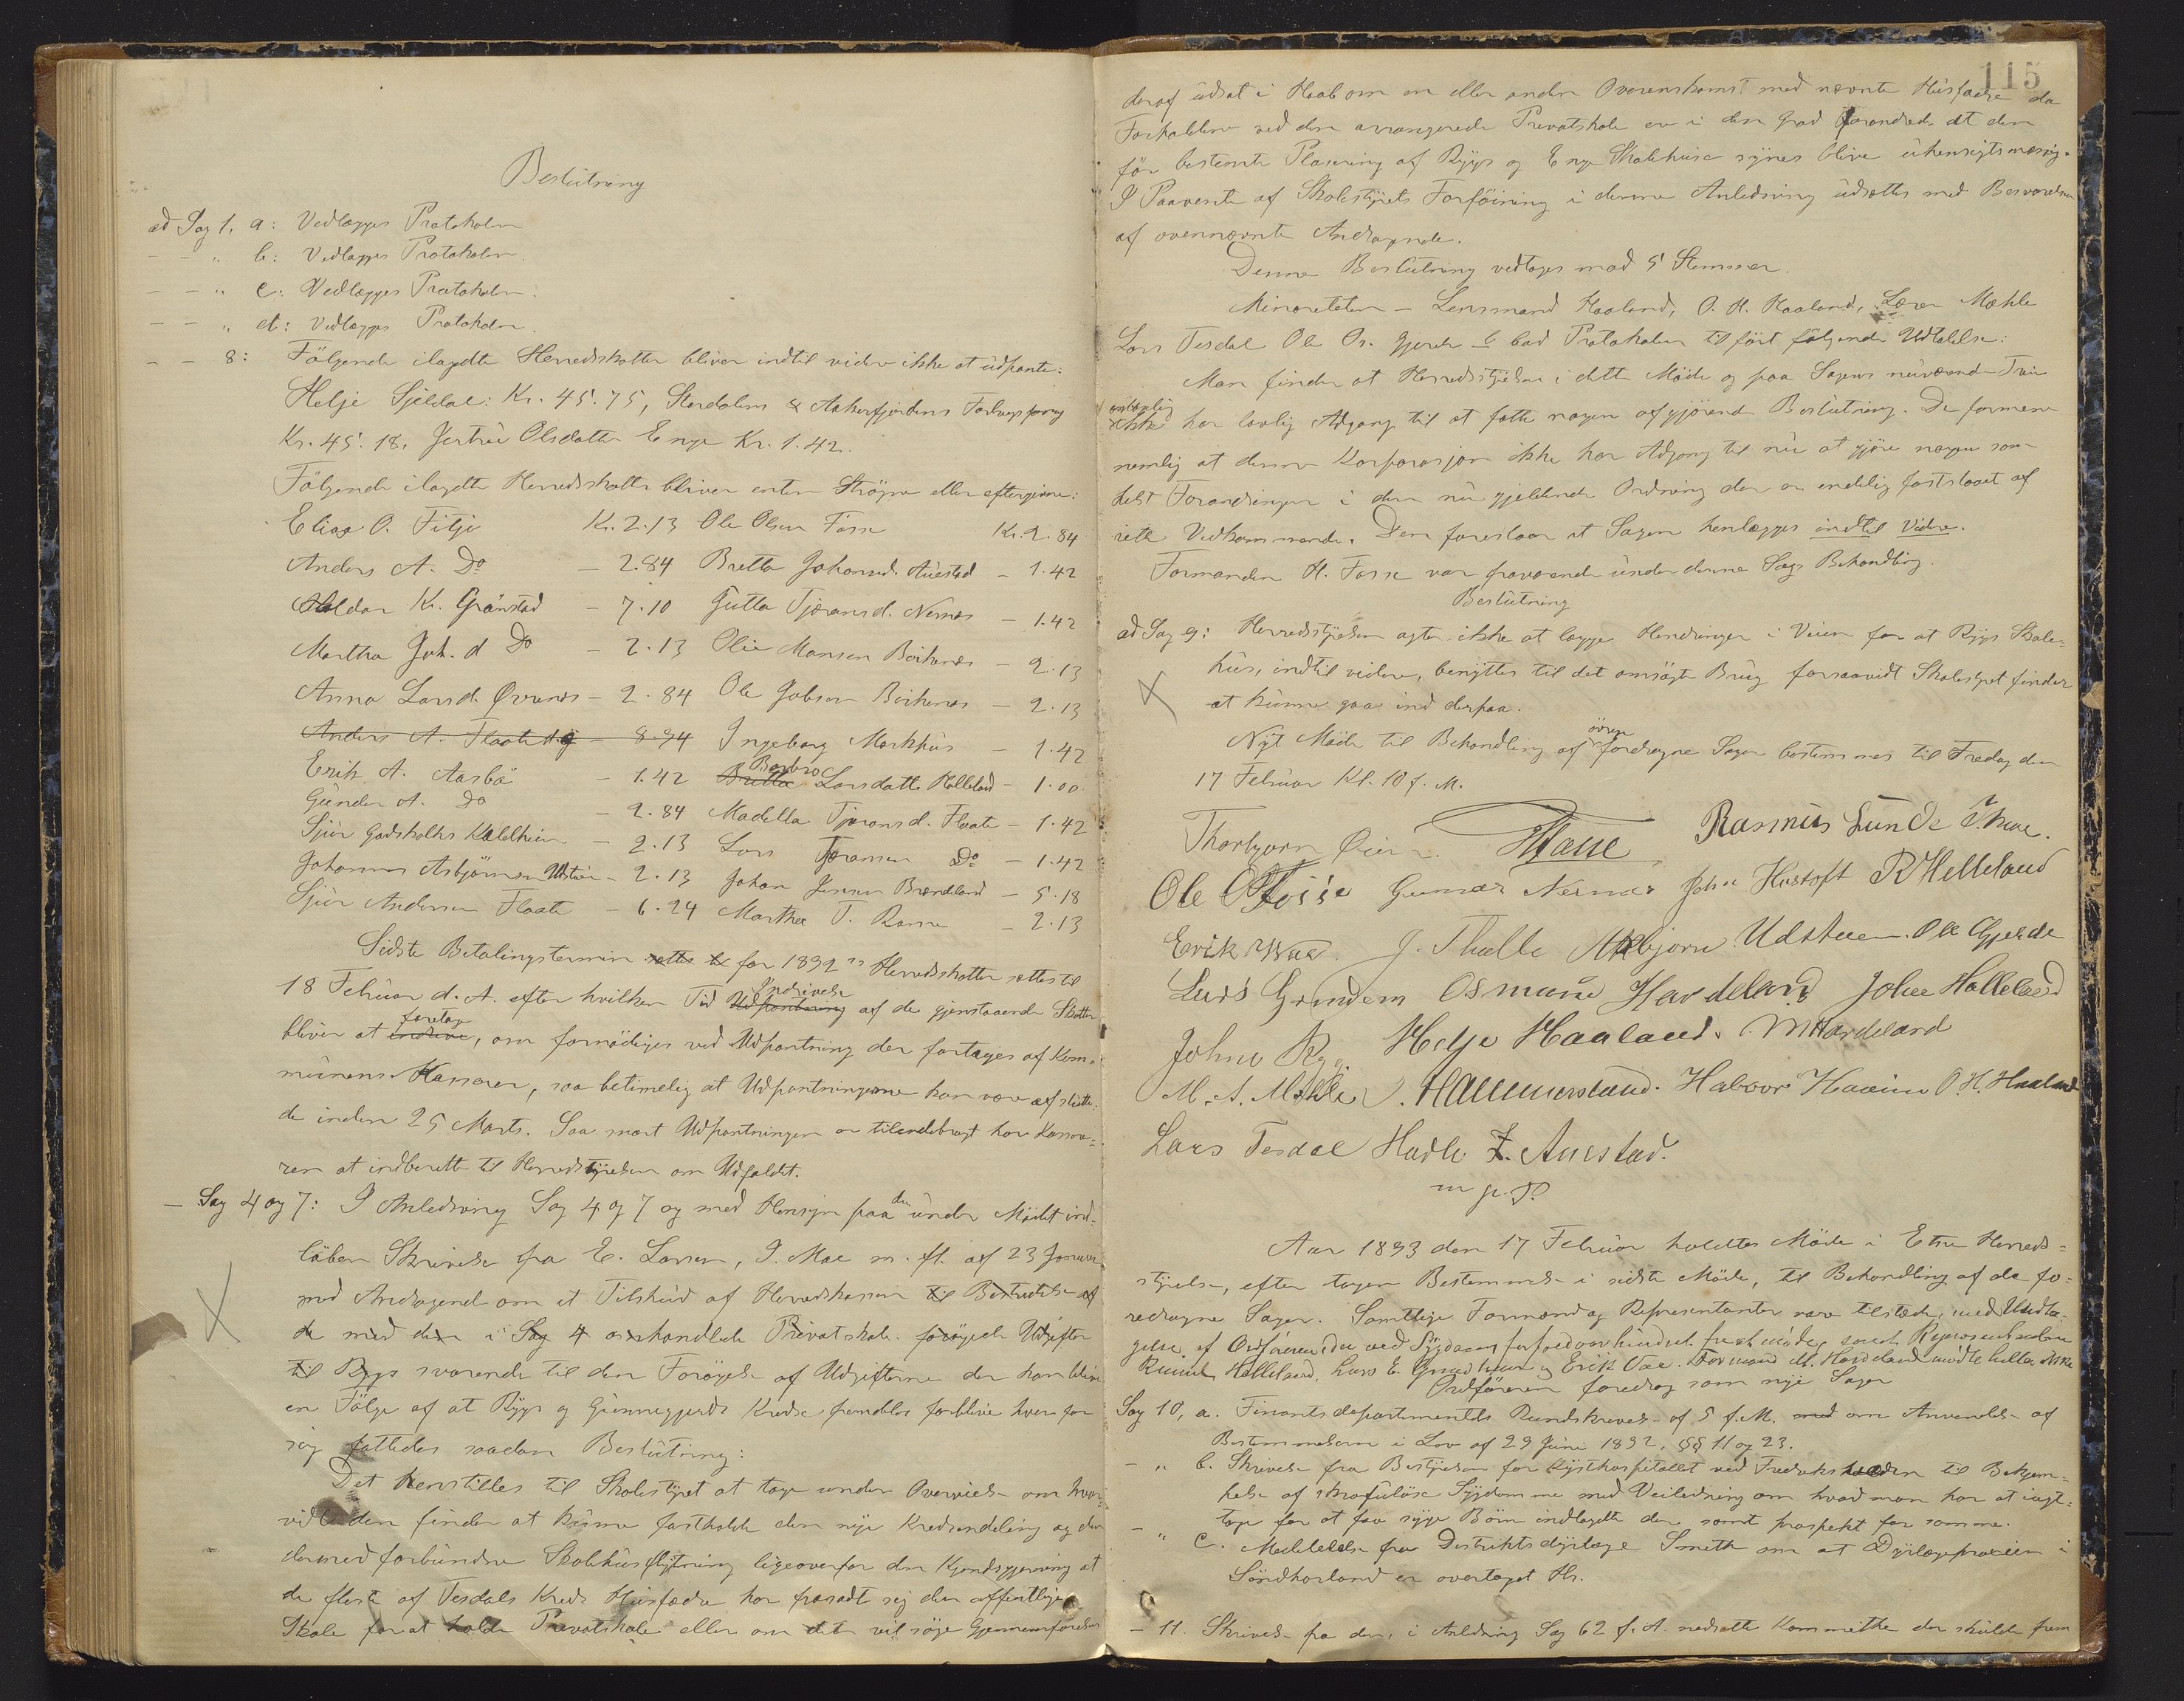 Beslutning
ad Sag 1, a: Vedlægges Protokolen
- - " b: Vedlægges Protokolen.
- - " c: Vedlægges Protokolen.
- - " d: Vedlægges Protokolen.
- - 8: Følgende ilagdte Herredsskatter bliver indtil videre ikke at udpante:
Helje Sjeldal: Kr. 45.75, Stordalens & Aakrefjordens
Kr. 45.18, Olsdatter Enge Kr. 1.42.
Følgende ilagdte Herredsskatte bliver enten Strøgne eller eftergivne:
Elias O. Fitje Kr. 2.13 Ole Olsen Fosse Kr. 2.84
Anders A. Do - 2.84 Britta Johannesd. Auestad - 1.42
Haldor K. Grønstad - 7.10 Gutta Tjæransd. Nernæs - 1.42
Martha Joh.d Do - 2.13 Olai Monsen Børkenes - 2.13
Anna Larsd. Øvernes - 2.84 Ole Jobsen Børkenes - 2.13
Anders A. Flaate - 8.94 Ingeborg Markhus - 1.42
Barbro
Erik A. Aasbø - 1.42 Britta Larsdatter Halleland - 1.00
Gunder A. Do - 2.84 Madella Tjøransd. Flaate - 1.42
Sjur Godskalks Kaldheim - 2.13 Lars Tjøransen Do - 1.42
Johannes Asbjørnsen Udstuen - 2.13 Johan Jensen Brændland - 5.18
Sjur Andersen Flaate - 6.24 Martha T. Ramn - 2.13
Sidste Betalingstermin sættes til for 1892 Herredsskatter sættes til
18 Februar d. A. efter hvilken Tid Udpantning Inddrivelse af de gjenstaaende Skatter
bliver at inddrive foretage, om fornødiges ved Udpantning der foretages af Kom-
munens Kasserer, saa betimelig at Udpantningerne kan være afslutte-
de inden 25 Marts. Saa snart Udpantningen er tilendebragt har Kasse-
reren at indberette til Herredsstyrelsen om Udfaldet.
- Sag 4 og 7: I Anledning Sag 4 og 7 og med Hensyn paa den under Mødet ind-
løbne Skrivelse fra E. Larsen, I. Moe m. fl. af 23 Januar
med Andragende om et Tilskud af Herredskassen til Bestridelse af
de med den i Sag 4 omhandlede Privatskole forøgede Udgifter
til Rygs svarende til den Forøgelse af Udgifterne der kan blive
en Følge af at Rygs og Gunnegjerds Kredse fremdeles forblive hver for
sig fattedes saadan Beslutning:
Det henstilles til Skolestyret at tage under Overveielse om hvor-
vidt den finder at kunne fastholde den nye Kredsendeling og den
dermed forbundne Skolehusflytning ligeoverfor den Kjendsgjerning at
de fleste af Tesdals Kreds Husfædre har frasadt sig den offentlige
Skole for at holde Privatskole eller om det vil søge Gjennemførelsen
115
deraf udsat i Haab om en eller anden Overenskomst med nævnte Husfædre da
Forholdene ved den arrangerede Privatskole er i den Grad forandrede at den
før bestemte Plasering af Rygs og Enge Skolehuse synes blive uhensigtsmæssig.
I Paavente af Skolestyrets Forføining i denne Anledning udsættes med Besvarelsen
af ovennævnte Andragende.
Denne Beslutning vedtoges mod 5 Stemmer.
Minoriteten - Lensmand Haaland, O. H. Haaland, Lærer Mæhle
Lars Tesdal Ole Os. Gjerde - bad Protokolen tilført følgende Udtalelse:
Man finder at Herredsstyrelsen i dette Møde og paa Sagens nuværende Trin
ikke har lovlig Adgang til at fatte nogen afgjørende Beslutning. De formener
nemlig at denne Korporasjon ikke har Adgang til nu at gjøre nogen som
helst Forandringer i den nu gjeldende Ordning der er endelig fastslaaet af
rette Vedkommende. Den foreslaar at Sagen henlægges indtil Videre.
Formanden H. Fosse var fraværende under denne Sags Behandling.
Beslutning
ad Sag 9: Herredsstyrelsen agter ikke at lægge Hindringer i Veien for at Rygs Skole-
hus, indtil videre, benyttes til det omsøgte Brug forsaavidt Skolestyret finder
at kunne gaa ind derpaa.
Nyt Møde til Behandling af øvrige fordragne Sager bestemmes til Fredag den
17 Februar Kl. 10 f. M.
Thorbjørn Øien. HFosse Rasmus Lunde I. Moe.
Ole O Fosse Gunnar Nernæs John Hustoft R Helleland
Erik Vae. J. Thulle Asbjørn Udstuen. Ole Gjerde
Lars Grindem Osmund Hardeland Johan Halleland
Johne Ryg. Helje Haaland. M Hardeland
M. A. Mæhle J. Hammersland. Halvor Haaim O. H. Haaland
Lars Tesdal Hadle T. Auestad.
m. p. P.
Aar 1893 den 17 Februar holdtes Møde i Etne Herreds-
styrelse, efter tagen Bestemmelse i sidste Møde, til Behandling af de fo-
redragne Sager. Samtlige Formænd og Repræsentanter vare tilstede, med Undta-
gelse af Ordføreren der ved Sygdoms forfald var hindret fra at møde, samt Repræsentanterne
Halleland, Lars E. Grindheim og Erik Vae. Formand M. Hardeland mødte heller ikke
Ordføreren foredrog som nye Sager
Sag 10, a. Finantsdepartementets Rundskrivelse af 5 f. M. med om Anvendelse af
Bestemmelserne i Lov af 29 Juni 1892, §§ 11 og 23.
- " b. Skrivelse fra Bestyrelsen for Kysthospitalet ved Fredriksværn til Bekjæm-
pelse af skrofuløse Sygdomme med Veiledning om hvad man har at iagt-
tage for at faa syge Børn indlagdte der samt prospekt for samme.
- " c. Meddelelse fra Distriktsdyrlæge Smith om at Dyrlægepraxisen i
Søndhorland er overtaget Hr.
- 11. Skrivelse fra den, i Anledning Sag 62 f. A. nedsatte Kommitthe der skulde frem